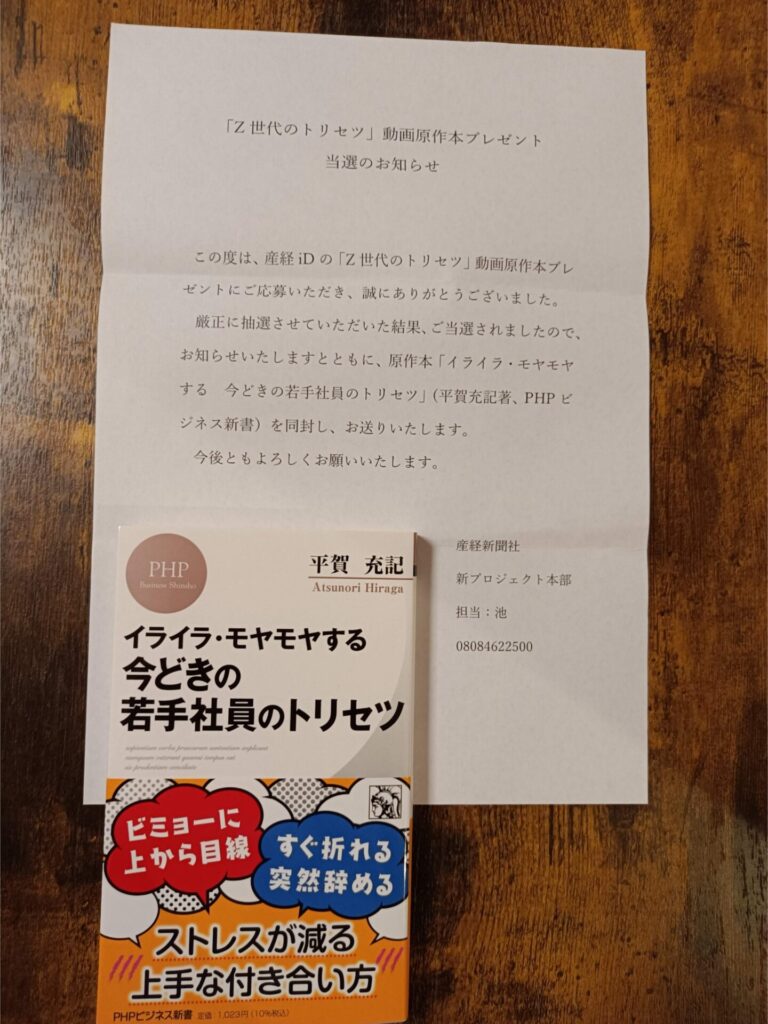 「Z 世代のトリセツ」動画原作本プレゼント
当選のお知らせ
この度は、産経 iD の「Z 世代のトリセツ」動画原作本プレ
ゼントにご応募いただき、誠にありがとうございました。
厳正に抽選させていただいた結果、ご当選されましたので、
お知らせいたしますとともに、原作本「イライラ・モヤモヤ
する　今どきの若手社員のトリセツ」(平賀充記著、PHP ビ
ジネス新書）を同封し、お送りいたします。
今後ともよろしくお願いいたします。
産経新聞社
新プロジェクト本部
担当：池
08084622500
PHP
Business Shinsho
平賀 充記
Atsunori Hiraga
イライラ・モヤモヤする
今どきの
若手社員のトリセツ
ビミョーに
上から目線
すぐ折れる
突然辞める
ストレスが減る
上手な付き合い方
PHPビジネス新書 定価：1,023円（10％税込）